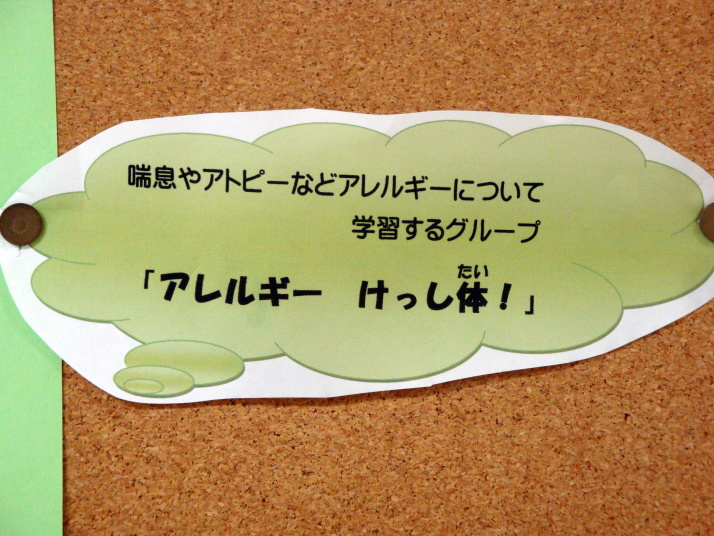 喘息やアトピーなどアレルギーについて
学習するグループ
たい
「アレルギー　けっし体！」